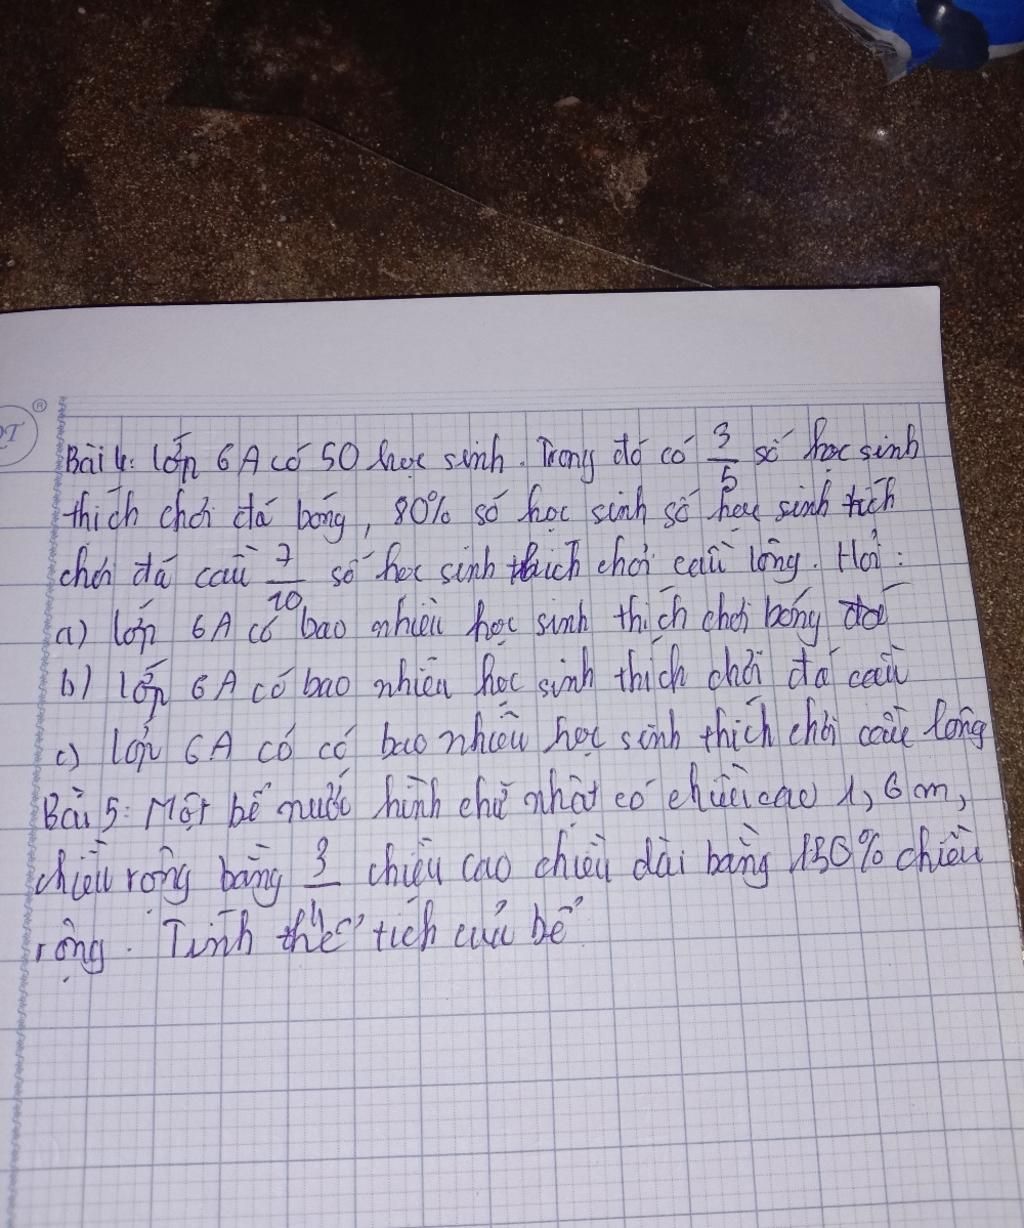 Bài 4: Lớp 6A có 50 học sinh. Trong đó có 3/5 số học sinh
thích chơi đá bóng, 80% số học sinh số học sinh tích
chơi đá cầu 7/10 số học sinh thích chơi cầu lông. Hỏi:
a) lớp 6A có bao nhiêu học sinh thích chơi bóng đá
b) lớp 6A có bao nhiêu học sinh thích chơi đá cầu
c) lớp 6A có có bao nhiêu học sinh thích chơi cầu lông
Bài 5: Một bể nước hình chữ nhật có chiều cao 1,6m,
chiều rộng bằng 3/4 chiều cao chiều dài bằng 130% chiều
rộng. Tính thể tích của bể